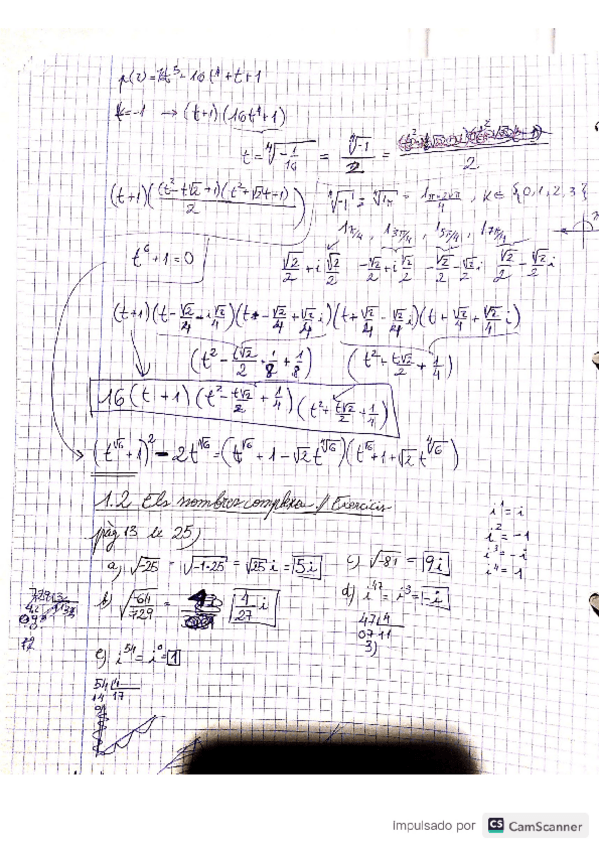 p(t)=16t⁵-16t⁴+t+1
t=-1 → (t+1)(16t⁴+1)
t = ⁴√(-1/16) = ⁴√-1/2 = /2
(t+1)((t²-t√2+1)(t²+√2t+1)/2)
⁴√-1 = ⁴√1π = 1 π+2πk/4, k∈{0,1,2,3}
1π/4, 13π/4, 15π/4, 17π/4
t⁶+1=0
√2/2+i√2/2 -√2/2+i√2/2 -√2/2-√2/2i √2/2-√2/2i
(t+1)(t-√2/4-i√2/4)(t-√2/4+√2/4i)(t+√2/4-√2/4i)(t+√2/4+√2/4i)
(t²-t√2/2+1/8+1/8) (t²+t√2/2+1/4)
16(t+1)(t²-t√2/2+1/4)(t²+t√2/2+1/4)
(t^√6+1)²-2t^√6=(t^√6+1-√2t^⁴√6)(t^√6+1+√2t^⁴√6)
1.2 Els nombres complexos // Exercicis
i¹=i
i²=-1
i³=-i
i⁴=1
pàg 13 le 25)
a) √-25 = √-1·25 = √25 i = 5i
c) √-81 = 9i
b) √-64/729 = 4/27 i
d) i⁴⁷=i³=-i
47 4
07 11
3)
e) i⁵⁴=i⁰=1
54 4
14 17
Impulsado por CS CamScanner